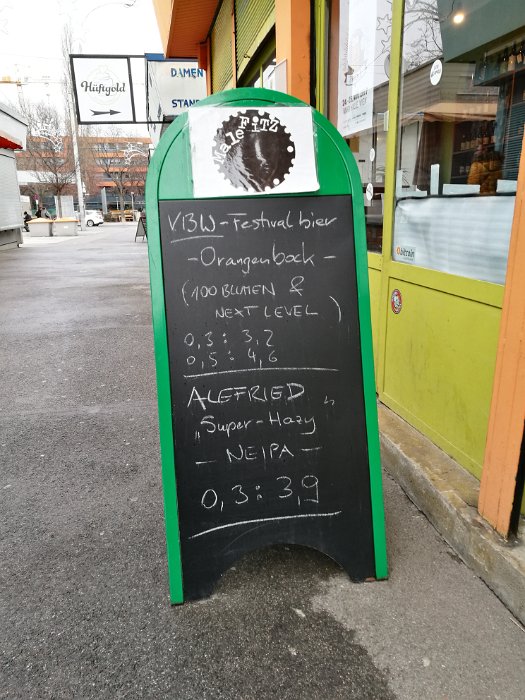 Hüftgold
DAMEN
STAN
Malefitz
VBW-Festival bier
- Orangenbock -
(100 BLUMEN &
NEXT LEVEL)
0,3: 3,2
0,5: 4,6
ALEFRIED
„Super-Hazy"
- NEIPA -
0,3: 3,9